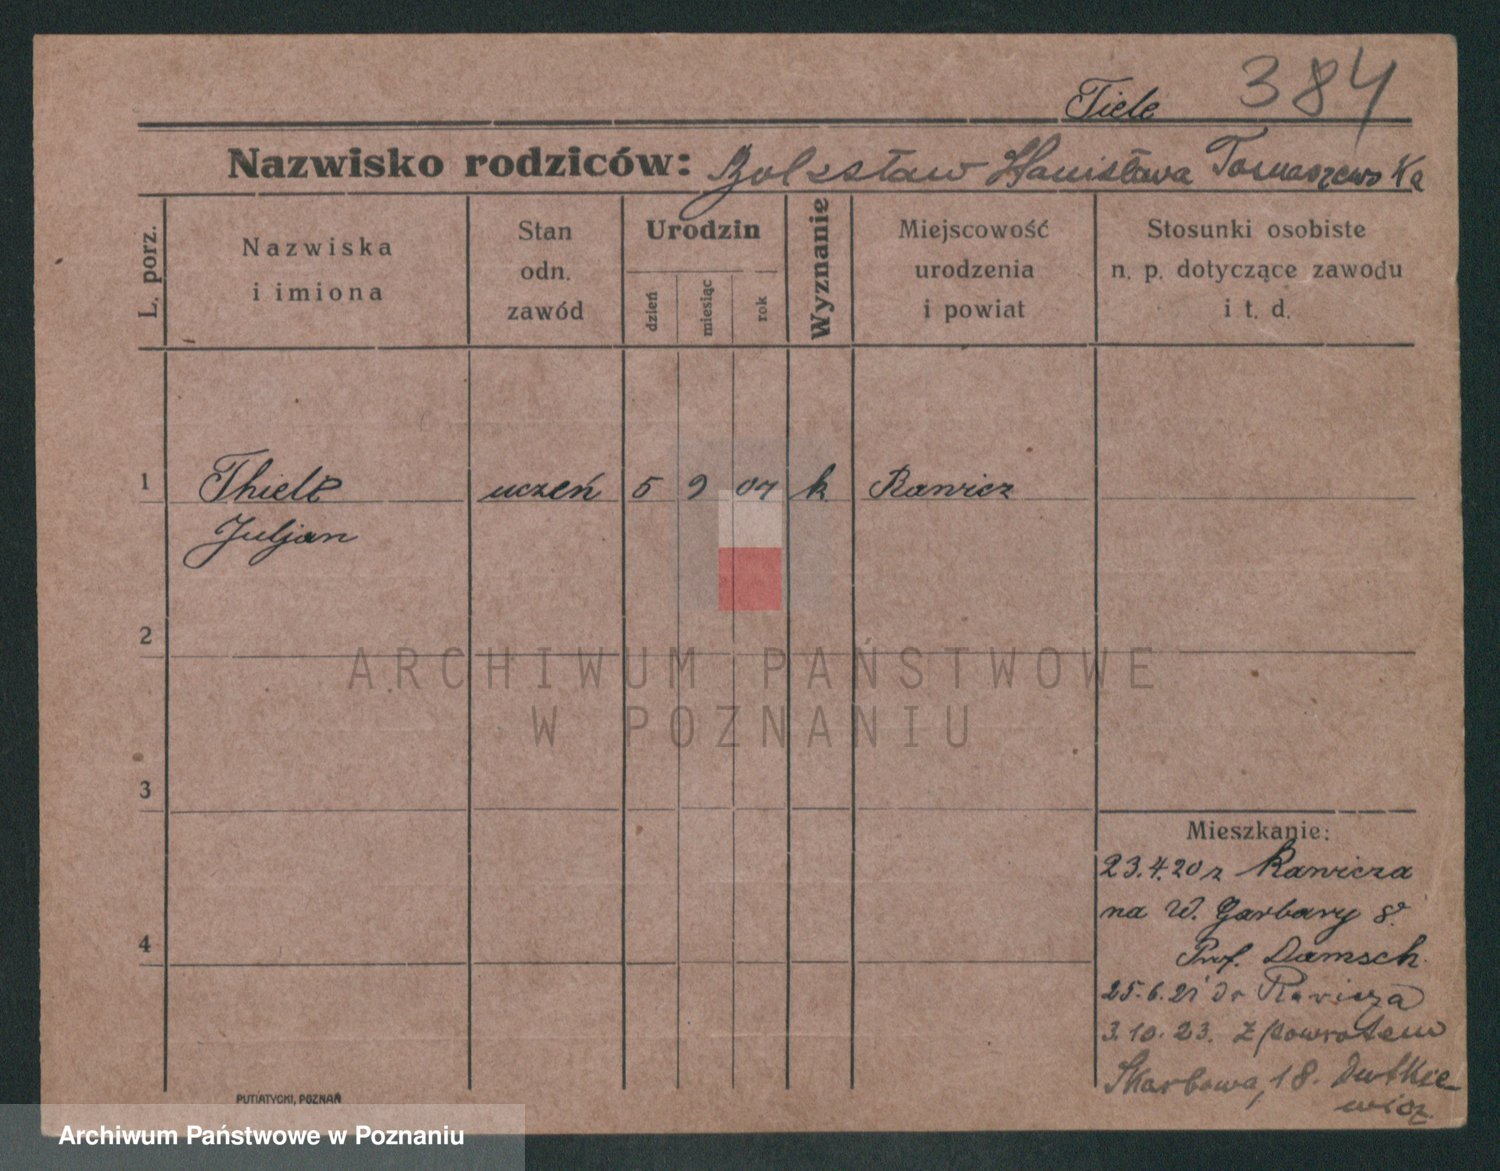 Tiele 384
Nazwisko rodziców: Bolesław Stanisława Tomaszewska
L. porz.
Nazwiska
i imiona
Stan
odn.
zawód
Urodzin
dzień
miesiąc
rok
Wyznanie
Miejscowość
urodzenia
i powiat
Stosunki osobiste
n. p. dotyczące zawodu
i t. d.
1 Thiele uczeń 5 9 07 k Rawicz
Juljan
2
ARCHIWUM PAŃSTWOWE
W POZNANIU
3
Mieszkanie:
23.4.20 z Rawicza
na W. Garbary 8.
4
Prof. Damsch.
25.6.21 do Rawicza
3.10.23. z powrotem
Skarbowa, 18. Dutkie-
wicz.
PUTIATYCKI, POZNAŃ
Archiwum Państwowe w Poznaniu